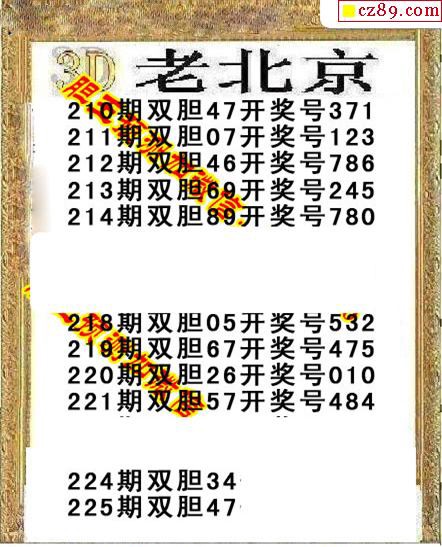 cz89.com
3D 老北京
210期双胆47开奖号371
211期双胆07开奖号123
212期双胆46开奖号786
213期双胆69开奖号245
214期双胆89开奖号780
218期双胆05开奖号532
219期双胆67开奖号475
220期双胆26开奖号010
221期双胆57开奖号484
224期双胆34
225期双胆47